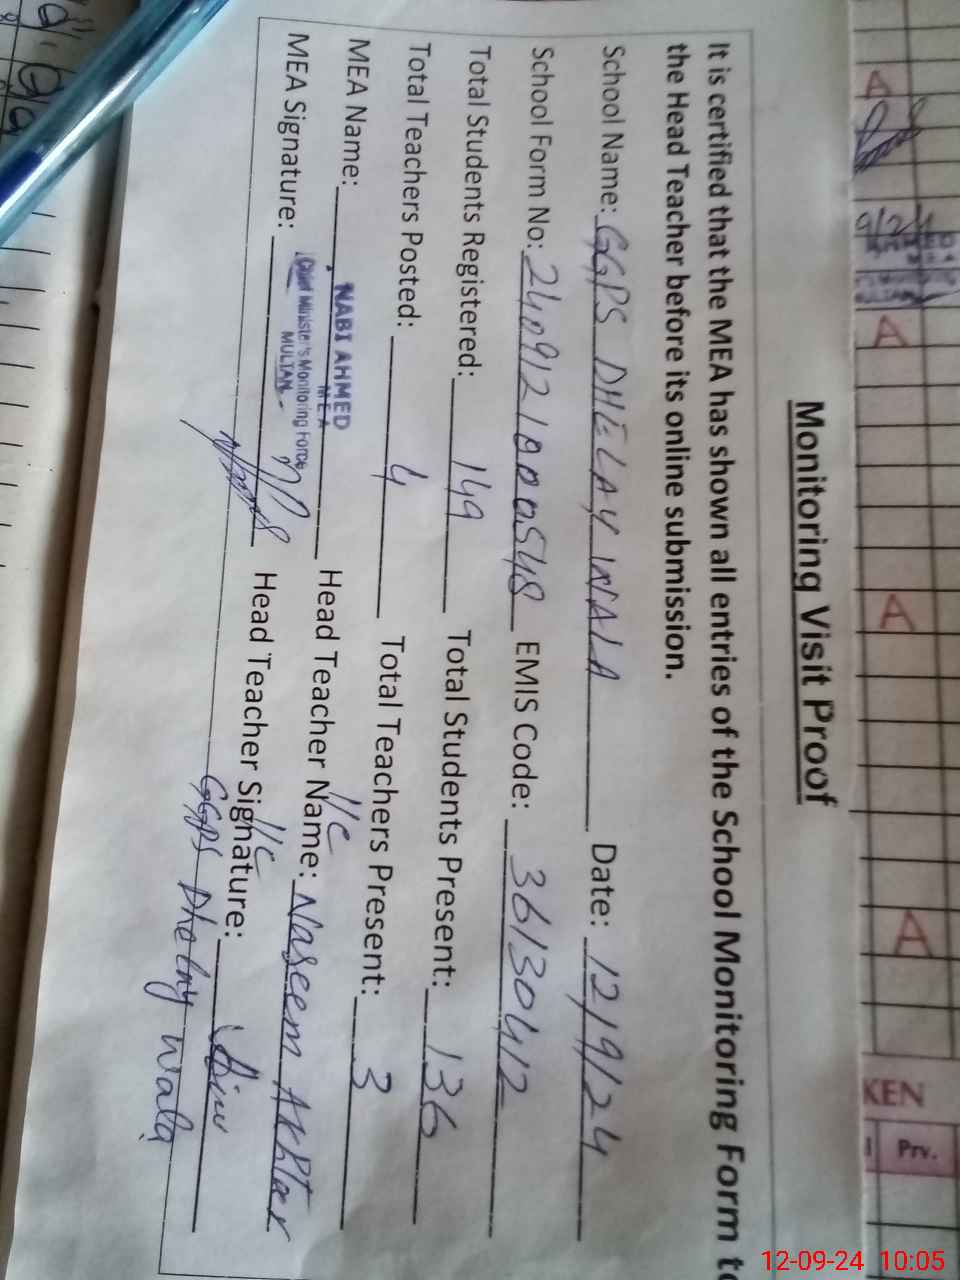 Monitoring Visit Proof
It is certified that the MEA has shown all entries of the School Monitoring Form to
the Head Teacher before its online submission.
School Name: GGPS DHELAY WALA Date: 12/9/24
School Form No: 240912100548 EMIS Code: 36130412
Total Students Registered: 149 Total Students Present: 136
Total Teachers Posted: 4 Total Teachers Present: 3
MEA Name: NABI AHMED Head Teacher Name: I/C Naseem Akhtar
MEA
Chief Minister's Monitoring Force
MULTAN
MEA Signature: Head Teacher Signature: I/C
GGPS Dhelay wala
A
A
A
A
KEN
Prv.
12-09-24 10:05